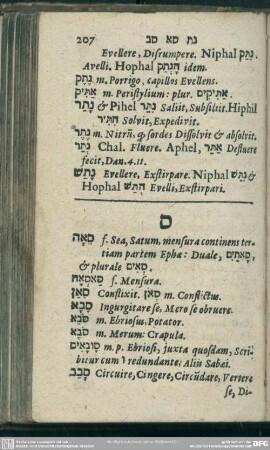 207 נת סא סב
Evellere, Disrumpere. Niphal נִתַּק.
Avelli. Hophal הָנְתַּק idem.
נֶתֶק m. Porrigo, capillos Evellens.
אַתִּיק m. Peristylium: plur. אַתִּיקִים
נָתַר & Pihel נִתֵּר Saliit, Subsiliit. Hiphil
הִתִּיר Solvit, Expedivit.
נֶתֶר m. Nitrū, qȝ sordes Dissolvit & absolvit.
נְתַר Chal. Fluere. Aphel, אַתַּר Defluere
fecit, Dan. 4.11.
נָתַשׁ Evellere, Exstirpare. Niphal נִתַּשׁ &
Hophal הֻתַּשׁ Evelli, Exstirpari.
ס
סְאָה f. Sea, Satum, mensura continens ter-
tiam partem Ephæ: Duale, סָאתַיִם,
& plurale סְאִים
סַאסְאָה f. Mensura.
סָאַן Conflixit. סְאוֹן m. Conflictus.
סָבָא Ingurgitare se, Mero se obruere.
סֹבֵא m. Ebriosus: Potator.
סֹבֶא m. Merum: Crapula.
סוֹבָאִים m. p. Ebriosi, juxta quosdam, Scri-
bitur cum ו redundante: Aliis Sabæi.
סָבַב Circuire, Cingere, Circūdare, Vertere
se, Di-